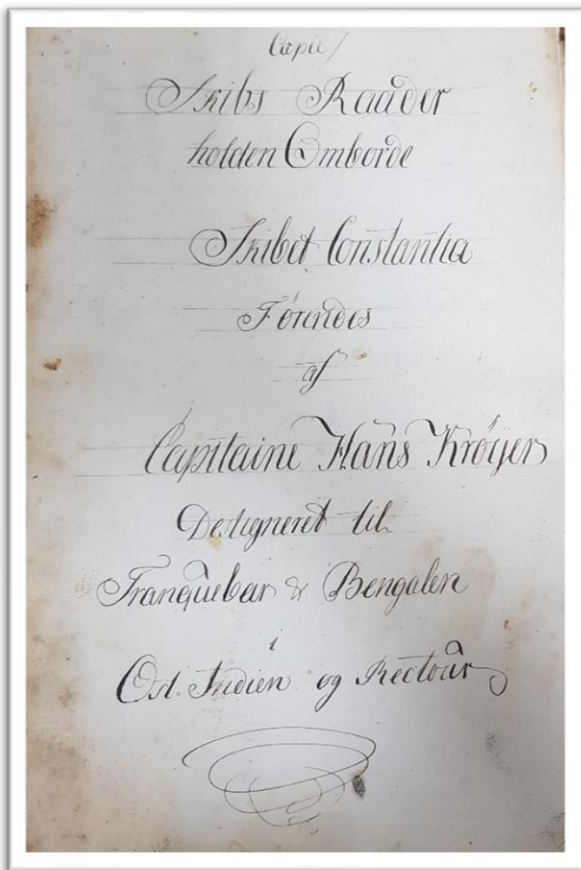 Copie/
Skibs Raader
holden Omborde
Skibet Constantia
Førendes
af
Capitaine Hans Krøyer
Destigneret til
Tranquebar & Bengalen
i
Ost Indien og Rectour